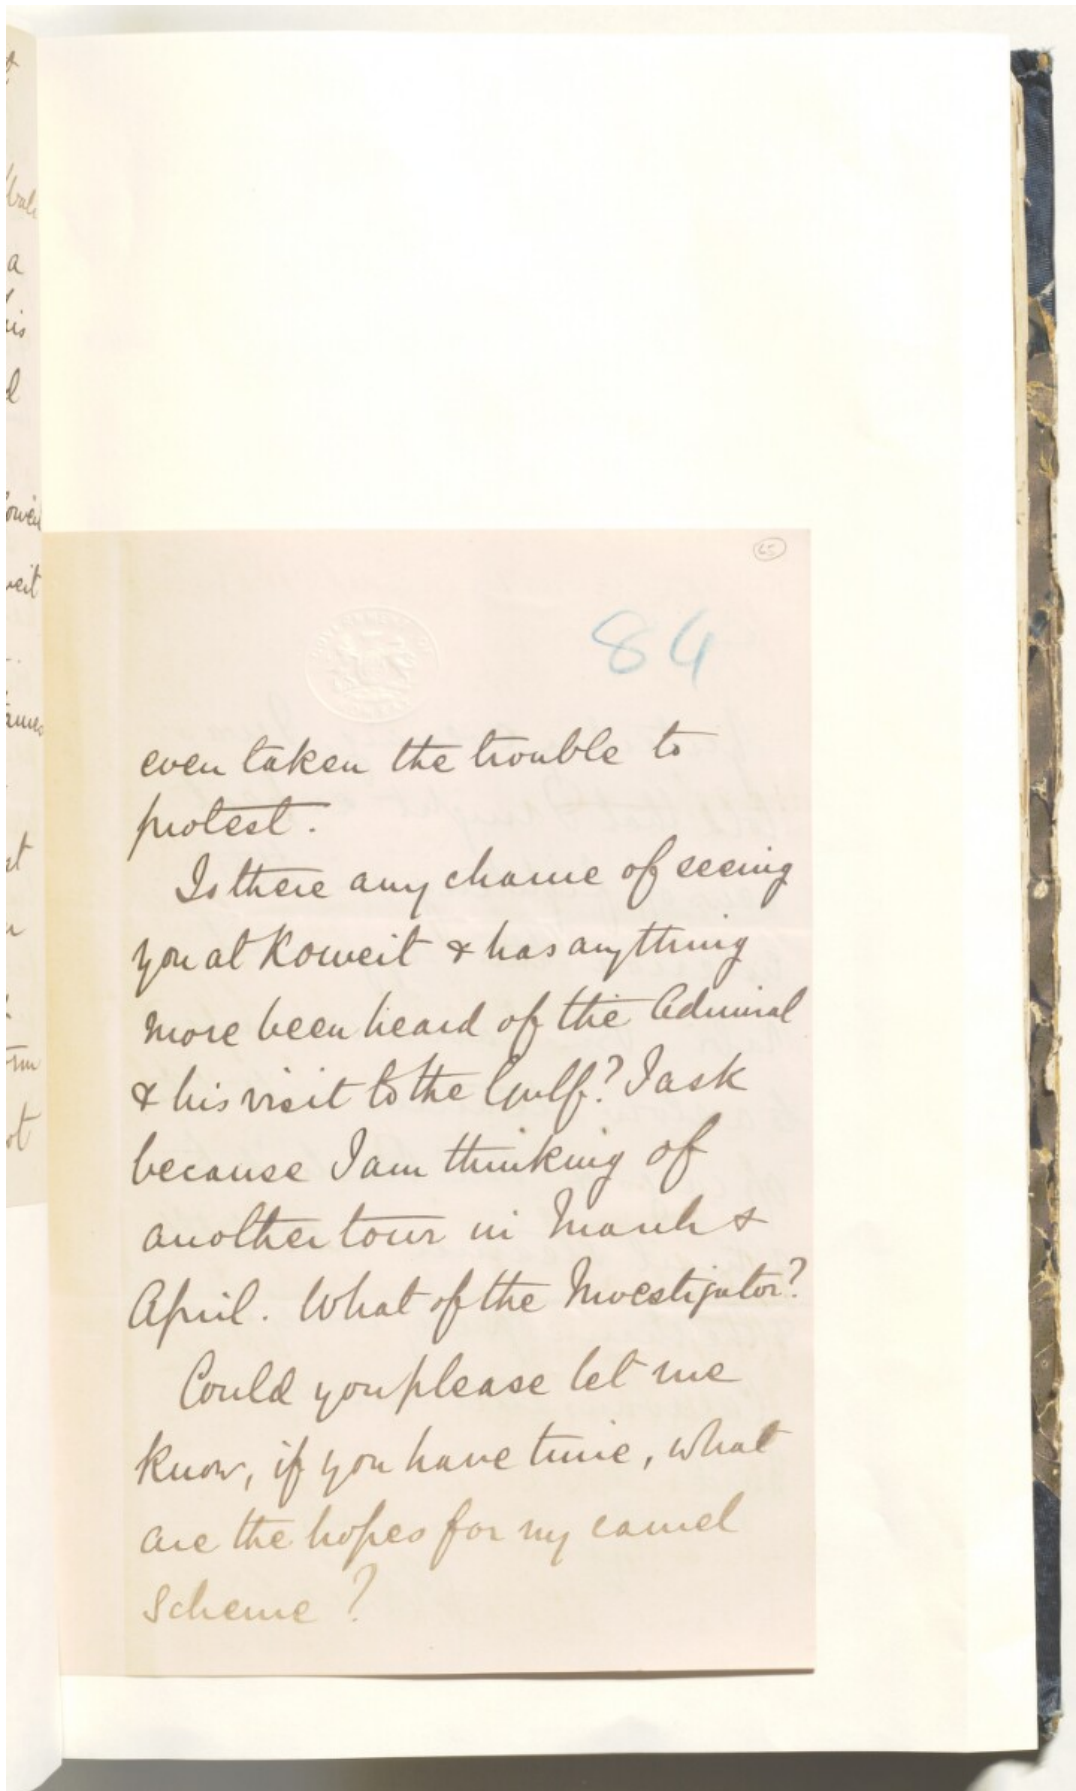 65
84
even taken the trouble to
protest.
Is there any chance of seeing
you at Koweit & has anything
more been heard of the Admiral
& his visit to the Gulf? I ask
because I am thinking of
another tour in March &
April. What of the Investigator?
Could you please let me
know, if you have time, what
are the hopes for my camel
scheme?